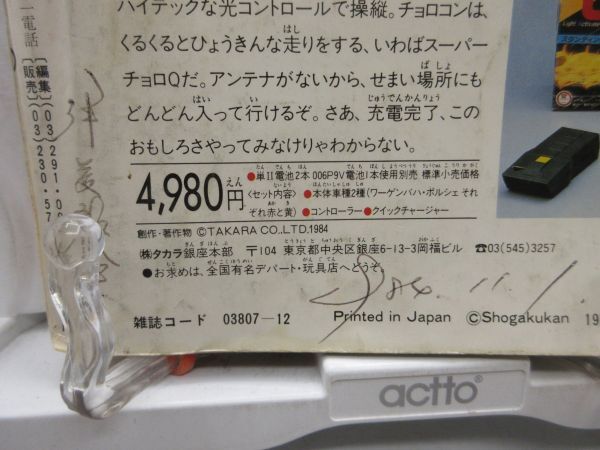 ハイテックな光コントロールで操縦。チョロコンは、
くるくるとひょうきんな走りをする、いわばスーパー
チョロQだ。アンテナがないから、せまい場所にも
どんどん入って行けるぞ。さあ、充電完了、この
おもしろさやってみなけりゃわからない。
4,980円
●単II電池2本 006P9V電池1本使用別売 標準小売価格
〈セット内容〉 ●本体車種2種(ワーゲンバハ・ポルシェ それ
ぞれ赤と黄) ●コントローラー ●クイックチャージャー
創作・著作物 ©TAKARA CO.,LTD.1984
㈱タカラ 銀座本部 〒104 東京都中央区銀座6-13-3岡福ビル ☎03(545)3257
●お求めは、全国有名デパート・玩具店へどうぞ。
雑誌コード 03807—12 Printed in Japan ©Shogakukan 19
電話
〔編集〕(03)291
〔販売〕(03)230・57
スタンディン
actto®